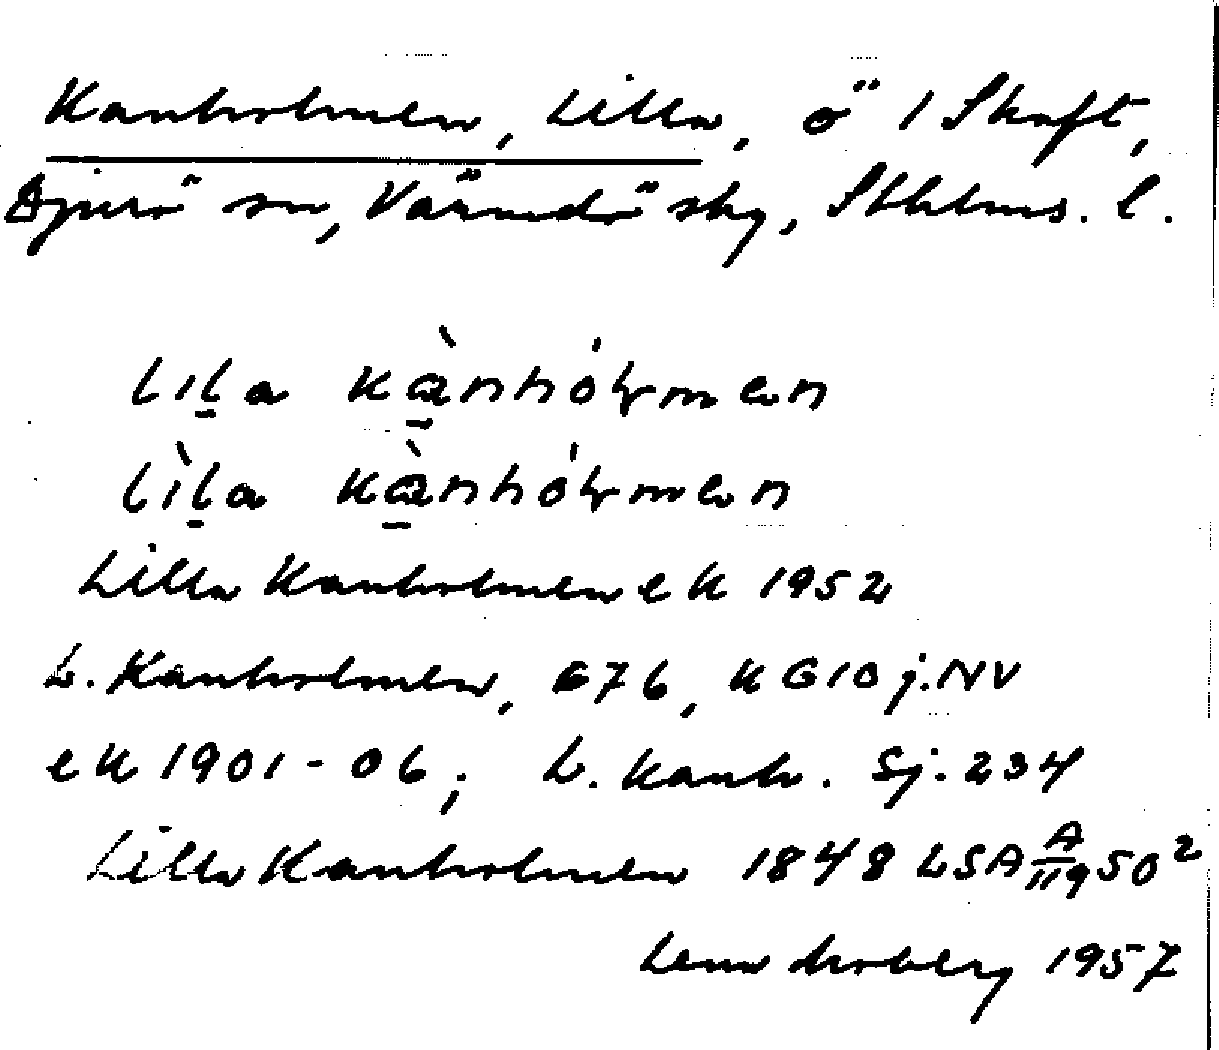 Kanholmen, Lilla, ö i Skaft,
Djurö sn, Värmdö sky, Sthlms. l.
lịla kạ̀nhólmen
lìḷa kạ̀nhólmen
Lilla Kanholmen ek 1952
L. Kanholmen, 676, KG10j.NV
ek 1901-06; L. Kanh. Sj. 234
Lilla Kanholmen 1848 LSA A/119 50²
1957